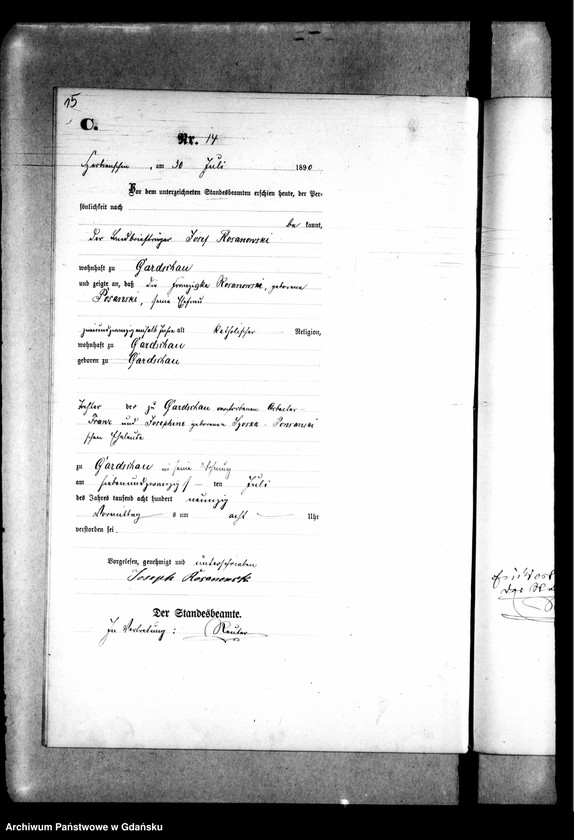 15
C.
Nr. 14
, am 30 Juli 1890
Vor dem unterzeichneten Standesbeamten erschien heute, der Per-
sönlichkeit nach
be kannt,
der Landbriefträger Josef Rosanowski
wohnhaft zu Gardschau
und zeigte an, daß die Franziska Rosanowski, geborene
Posanski, seine Ehefrau
zweiundzwanzig einhalb Jahre alt katholischer Religion,
wohnhaft zu Gardschau
geboren zu Gardschau
Tochter der zu Gardschau verstorbenen Arbeiter
Franz und Josephine geborenen
schen Eheleute
zu Gardschau in seine Wohnung
am siebenundzwanzig ten Juli
des Jahres tausend acht hundert neunzig
Vormittag s um acht Uhr
verstorben sei.
Vorgelesen, genehmigt und unterschrieben
Joseph Rosanowski
Der Standesbeamte.
In Vertretung: Reuter
Archiwum Państwowe w Gdańsku